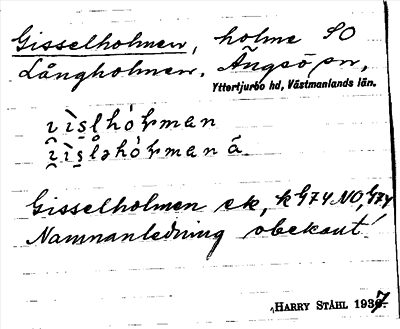 Gisselholmen, holme SO
Långholmen. Ängsö sn,
Yttertjurbo hd, Västmanlands län.
Gisselholmen ek, k G74 NO, G74
Namnanledning obekant!
HARRY STÅHL 1937.